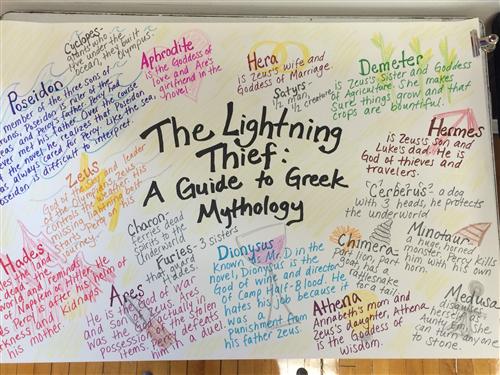 Cyclopes-
giants who
live under the
ocean, they built
Olympus.
Aphrodite
is the Goddess of
love and Ares's
girlfriend in the
novel.
Hera
is Zeus's wife and
Goddess of Marriage.
Satyrs-
1/2 man,
1/2 creature
Demeter
is Zeus's Sister and Goddess
of Agriculture. She makes
Sure things grow and that
crops are bountiful.
Poseidon
member of the three sons of
Poseidon is ruler of the
seas and Percy's father. Percy had
never met his Father. Over the course
of the novel, he realizes that Poseidon
always cared for Percy. Like the sea,
Poseidon is difficult to interpret.
The Lightning
Thief:
A Guide to Greek
Mythology
Hermes
is Zeus's son and
Luke's dad. He is
God of thieves and
travelers.
"Cerberus" a dog
with 3 heads, he protects
the underworld
Zeus
God of the sky and leader
of the Olympians. Zeus
controls the weather. His
missing lightning bolt
starts Percy on his
Journey.
Charon:
ferries dead
spirits to the
Underworld.
Furies- 3 sisters
that guard
Hades.
Dionysus
Known as Mr. D in the
novel, Dionysus is the
God of wine and director
of Camp Half-Blood. He
hates his job because it
was a
punishment from
his father Zeus.
Chimera-
part lion, part
goat, has a
rattlesnake
for a tail.
Minotaur
a huge, horned
monster, Percy kills
him with his own
horn.
Hades
rules the land
of the dead
and reminds
of Napoleon or Hitler. He
is after his helm of
darkness and kidnaps
his mother.
Ares
He is the God of War
and son of Zeus. Ares was
in possession of the stolen
items. Percy defeats
him in a duel.
Athena
Annabeth's mom and
Zeus's daughter, Athena
is the Goddess of
wisdom.
Medusa
disguises
herself as
Aunty Em, she
can turn anyone
to stone.